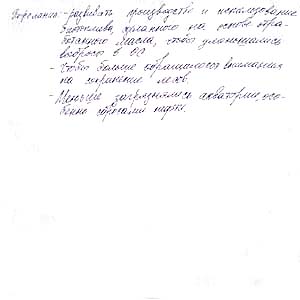 Пожелания: - развивать производство и использование
биотоплива, сделанного на основе обра-
ботанного масла, чтобы уменьшились
выбросы в
- Чтобы больше обращалось внимания
на хранение
- Меньше загрязнялись акватории, осо-
бенно сбросами нефти.